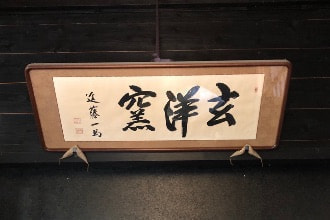 玄洋窯
進藤一馬